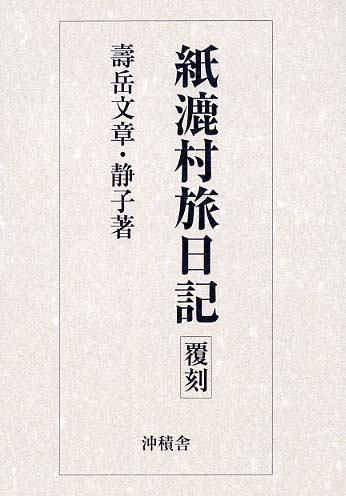 紙漉村旅日記
覆刻
壽岳文章・静子著
沖積舎